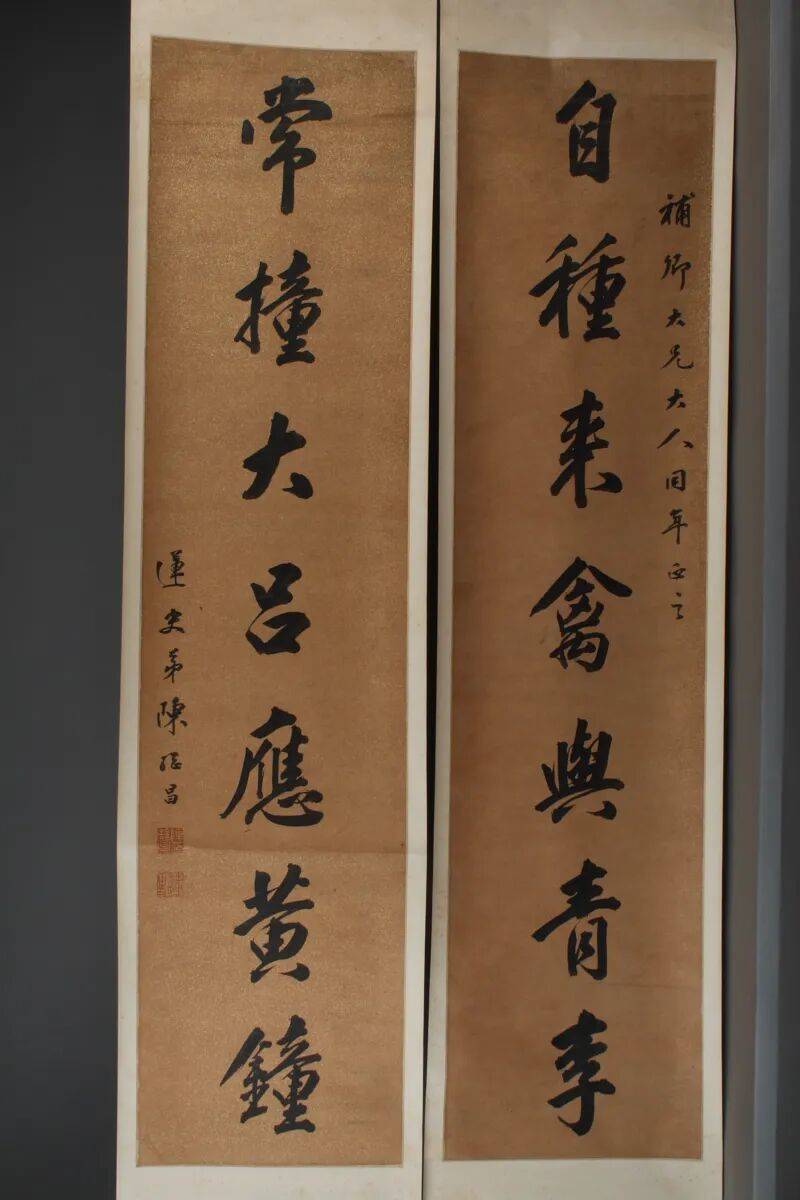 補卿大兄大人同年正之
自種來禽與青李
常撞大吕應黄鐘
蓮史弟陳继昌